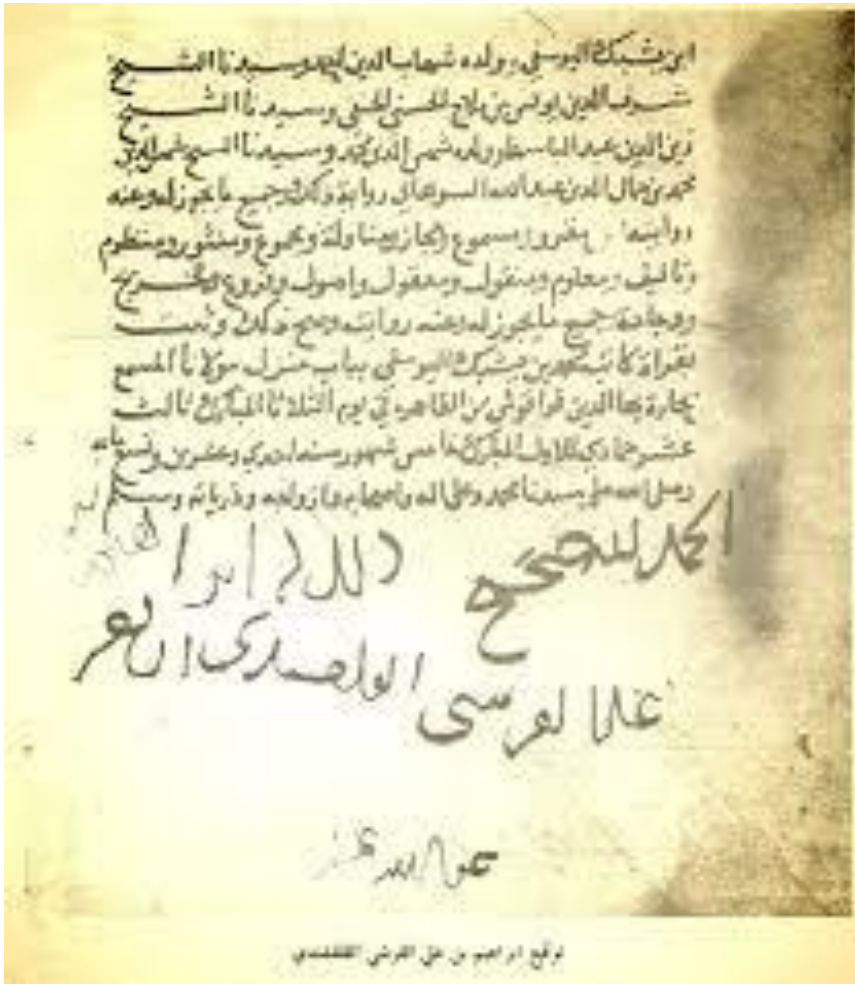 ابن يشبك اليوسفي وولده شهاب الدين احمد وسيدنا الشيخ
شرف الدين يونس بن ملاج الحسني الحنفي وسيدنا الشيخ
زين الدين عبد الباسط وولده شمس الدين محمد وسيدنا الشيخ شمس الدين
محمد بن جمال الدين عبد الله رواية ذلك وجميع ما يجوز له وعنه
روايته مقروء ومسموع واجازة ومناولة ومجموع ومنثور ومنظوم
وتأليف ومعلوم ومنقول ومعقول واصول وفروع وتخريج
ووجادة جميع ما يجوز له وعنه روايته وصح ذلك وثبت
بقراءة كاتبه محمد بن يشبك اليوسفي بباب منزل مولانا المسمع
بحارة بها الدين قراقوش من القاهرة في يوم الثلاثا المبارك ثالث
عشر جمادي الاول المبارك خامس شهور سنة احدي وعشرين وتسع مايه
وصلى الله على سيدنا محمد وعلى اله واصحابه وازواجه وذرياته وسلم
الحمد لله صحيح ذلك ابرا
علي القرشي القلقشندي
عفى الله عنه
توقيع ابراهيم بن علي القرشي القلقشندي